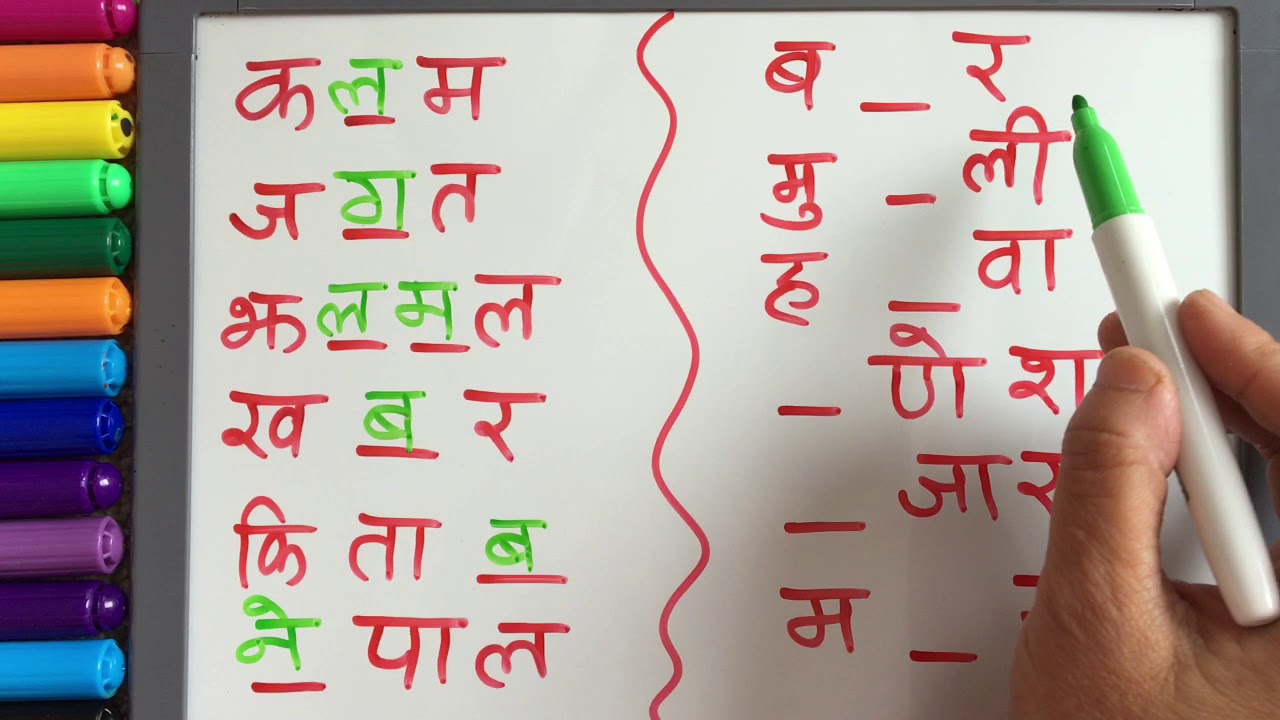 क ल म
ज ग त
झ ल म ल
ख ब र
कि ता ब
ने पा ल
ब _ र
मु _ ली
ह _ वा
_ णे श
_ जा र
म _